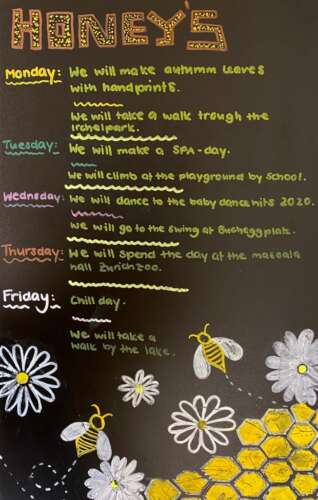 HONEY'S
Monday: We will make autumn leaves
with handprints.
We will take a walk trough the
irchelpark.
Tuesday: We will make a SPA-day.
We will climb at the playground by School.
Wednesday: We will dance to the babydancehits 2020.
We will go to the swing at Bucheggplatz.
Thursday: We will spend the day at the masoala
hall Zürichzoo.
Friday: Chill day.
We will take a
walk by the lake.